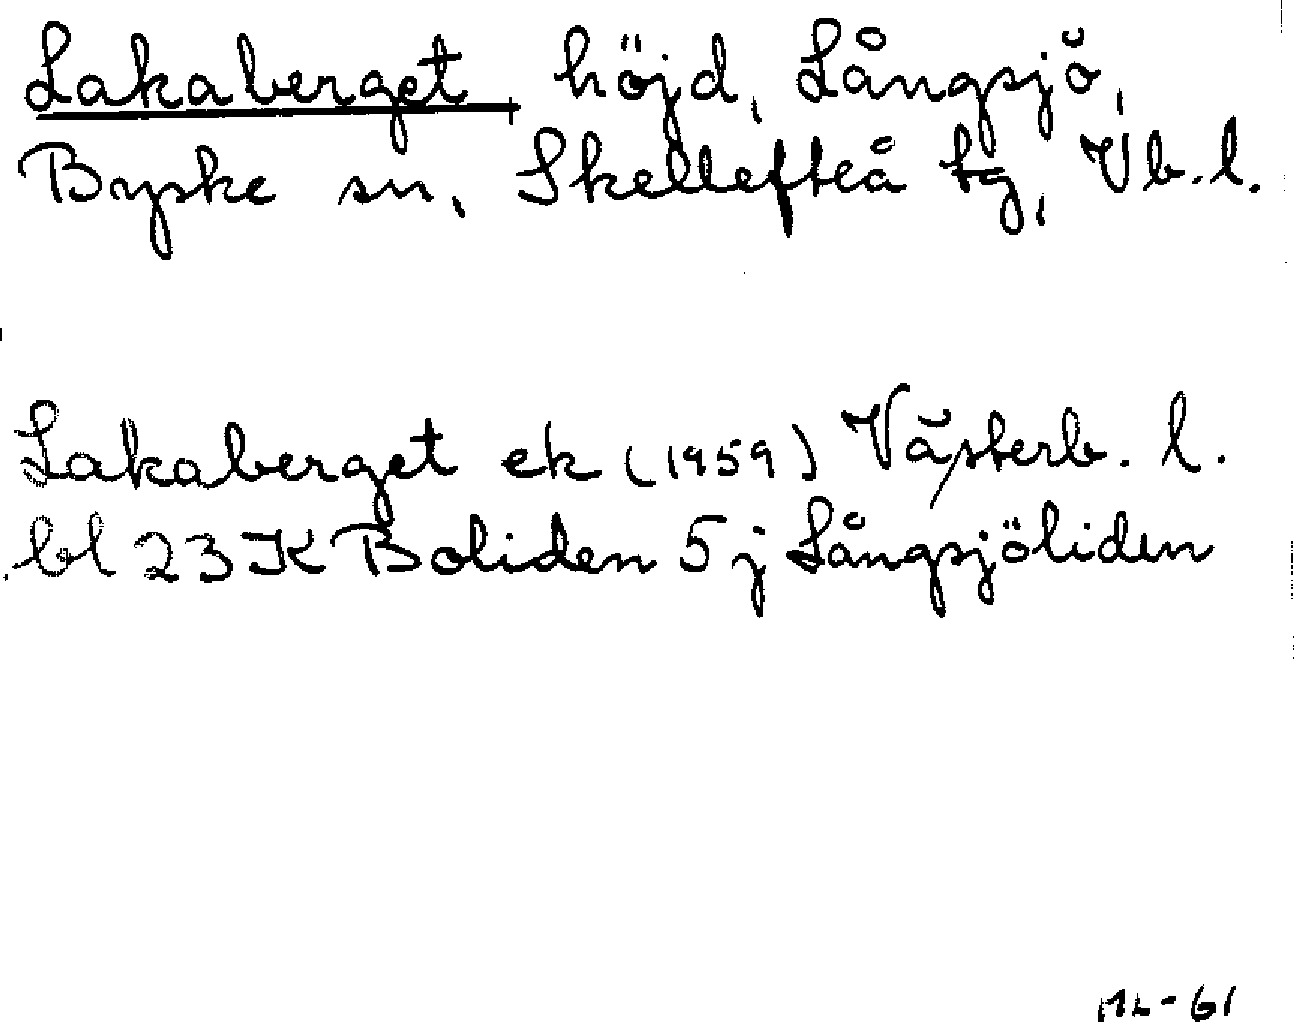 Lakaberget, höjd, Långsjö,
Byske sn, Skellefteå tg, Vb.l.
Lakaberget ek (1959) Västerb. l.
bl 23 K Boliden 5 j Långsjöliden
ML-61